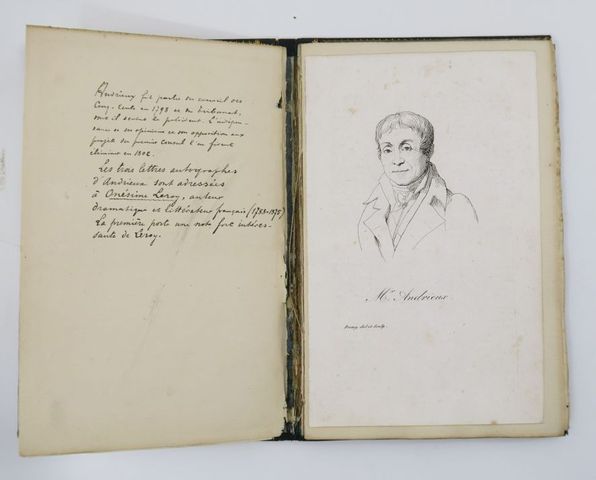 Andrieux fit partie du conseil des
Cinq-Cents en 1798 et du tribunat,
dont il devint le président. L'indépen-
dance de ses opinions et son opposition aux
projets du premier consul l'en firent
éliminer en 1802.
Les trois lettres autographes
d'Andrieux sont adressées
à Onésime Leroy, auteur
dramatique et littérateur français (1788-1875)
La première porte une note fort intéres-
sante de Leroy.
Mr. Andrieux
del et sculp.